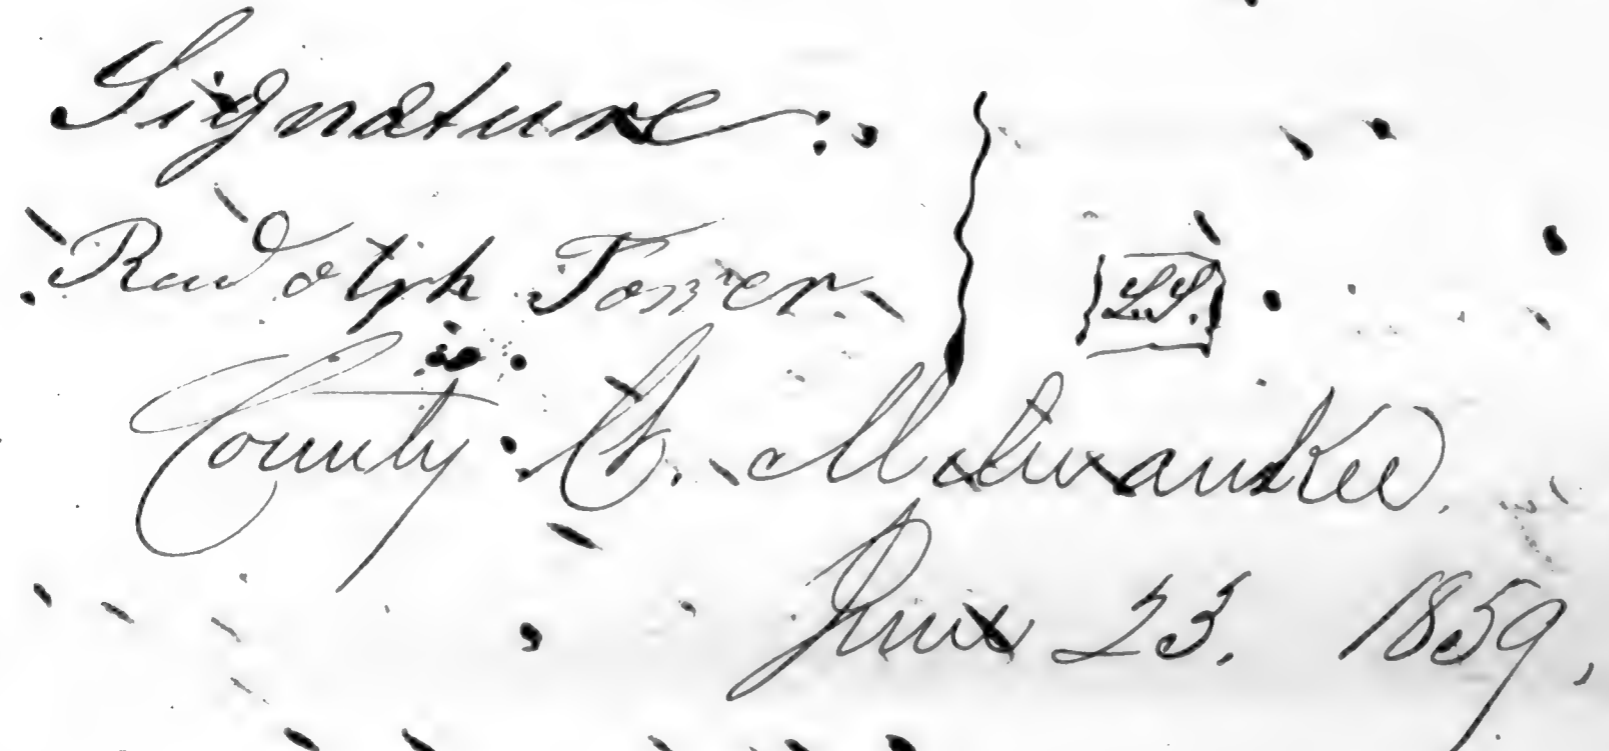 Signature:
Rudolph L.S.
County C. Milwaukee.
June 23. 1859.